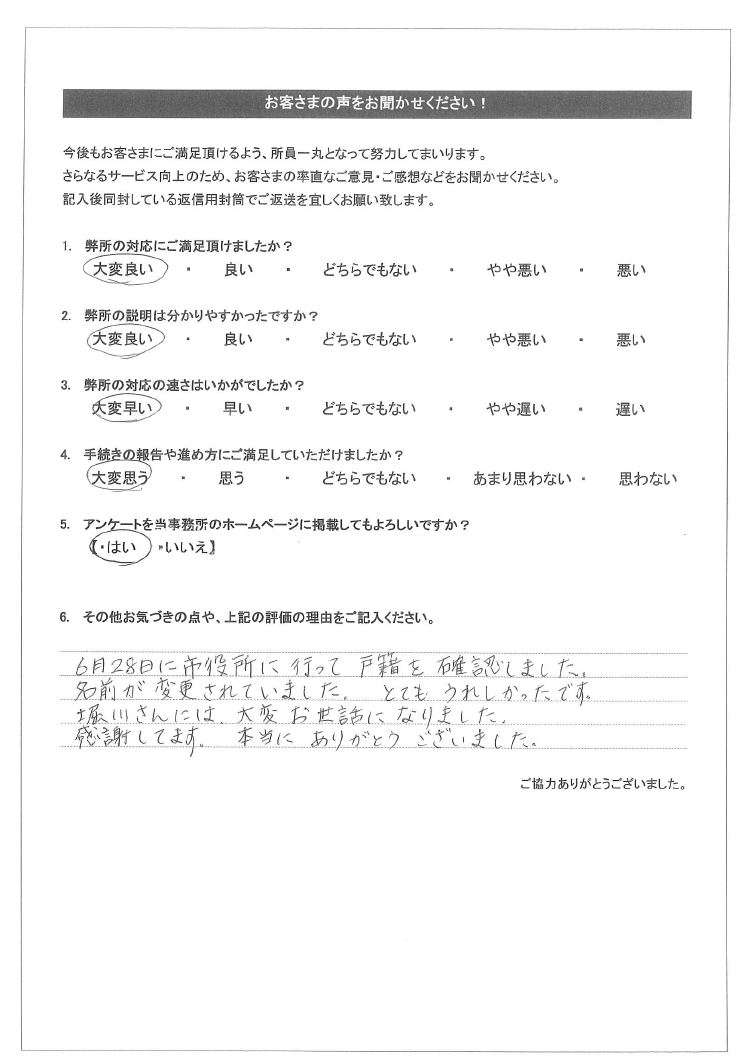 お客さまの声をお聞かせください！
今後もお客さまにご満足頂けるよう、所員一丸となって努力してまいります。
さらなるサービス向上のため、お客さまの率直なご意見・ご感想などをお聞かせください。
記入後同封している返信用封筒でご返送を宜しくお願い致します。
1. 弊所の対応にご満足頂けましたか？
大変良い ・ 良い ・ どちらでもない ・ やや悪い ・ 悪い
2. 弊所の説明は分かりやすかったですか？
大変良い ・ 良い ・ どちらでもない ・ やや悪い ・ 悪い
3. 弊所の対応の速さはいかがでしたか？
大変早い ・ 早い ・ どちらでもない ・ やや遅い ・ 遅い
4. 手続きの報告や進め方にご満足していただけましたか？
大変思う ・ 思う ・ どちらでもない ・ あまり思わない ・ 思わない
5. アンケートを当事務所のホームページに掲載してもよろしいですか？
【・はい ・いいえ】
6. その他お気づきの点や、上記の評価の理由をご記入ください。
6月28日に市役所に行って戸籍を確認しました。
名前が変更されていました。 とてもうれしかったです。
堀川さんには、大変お世話になりました。
感謝してます。 本当にありがとうございました。
ご協力ありがとうございました。